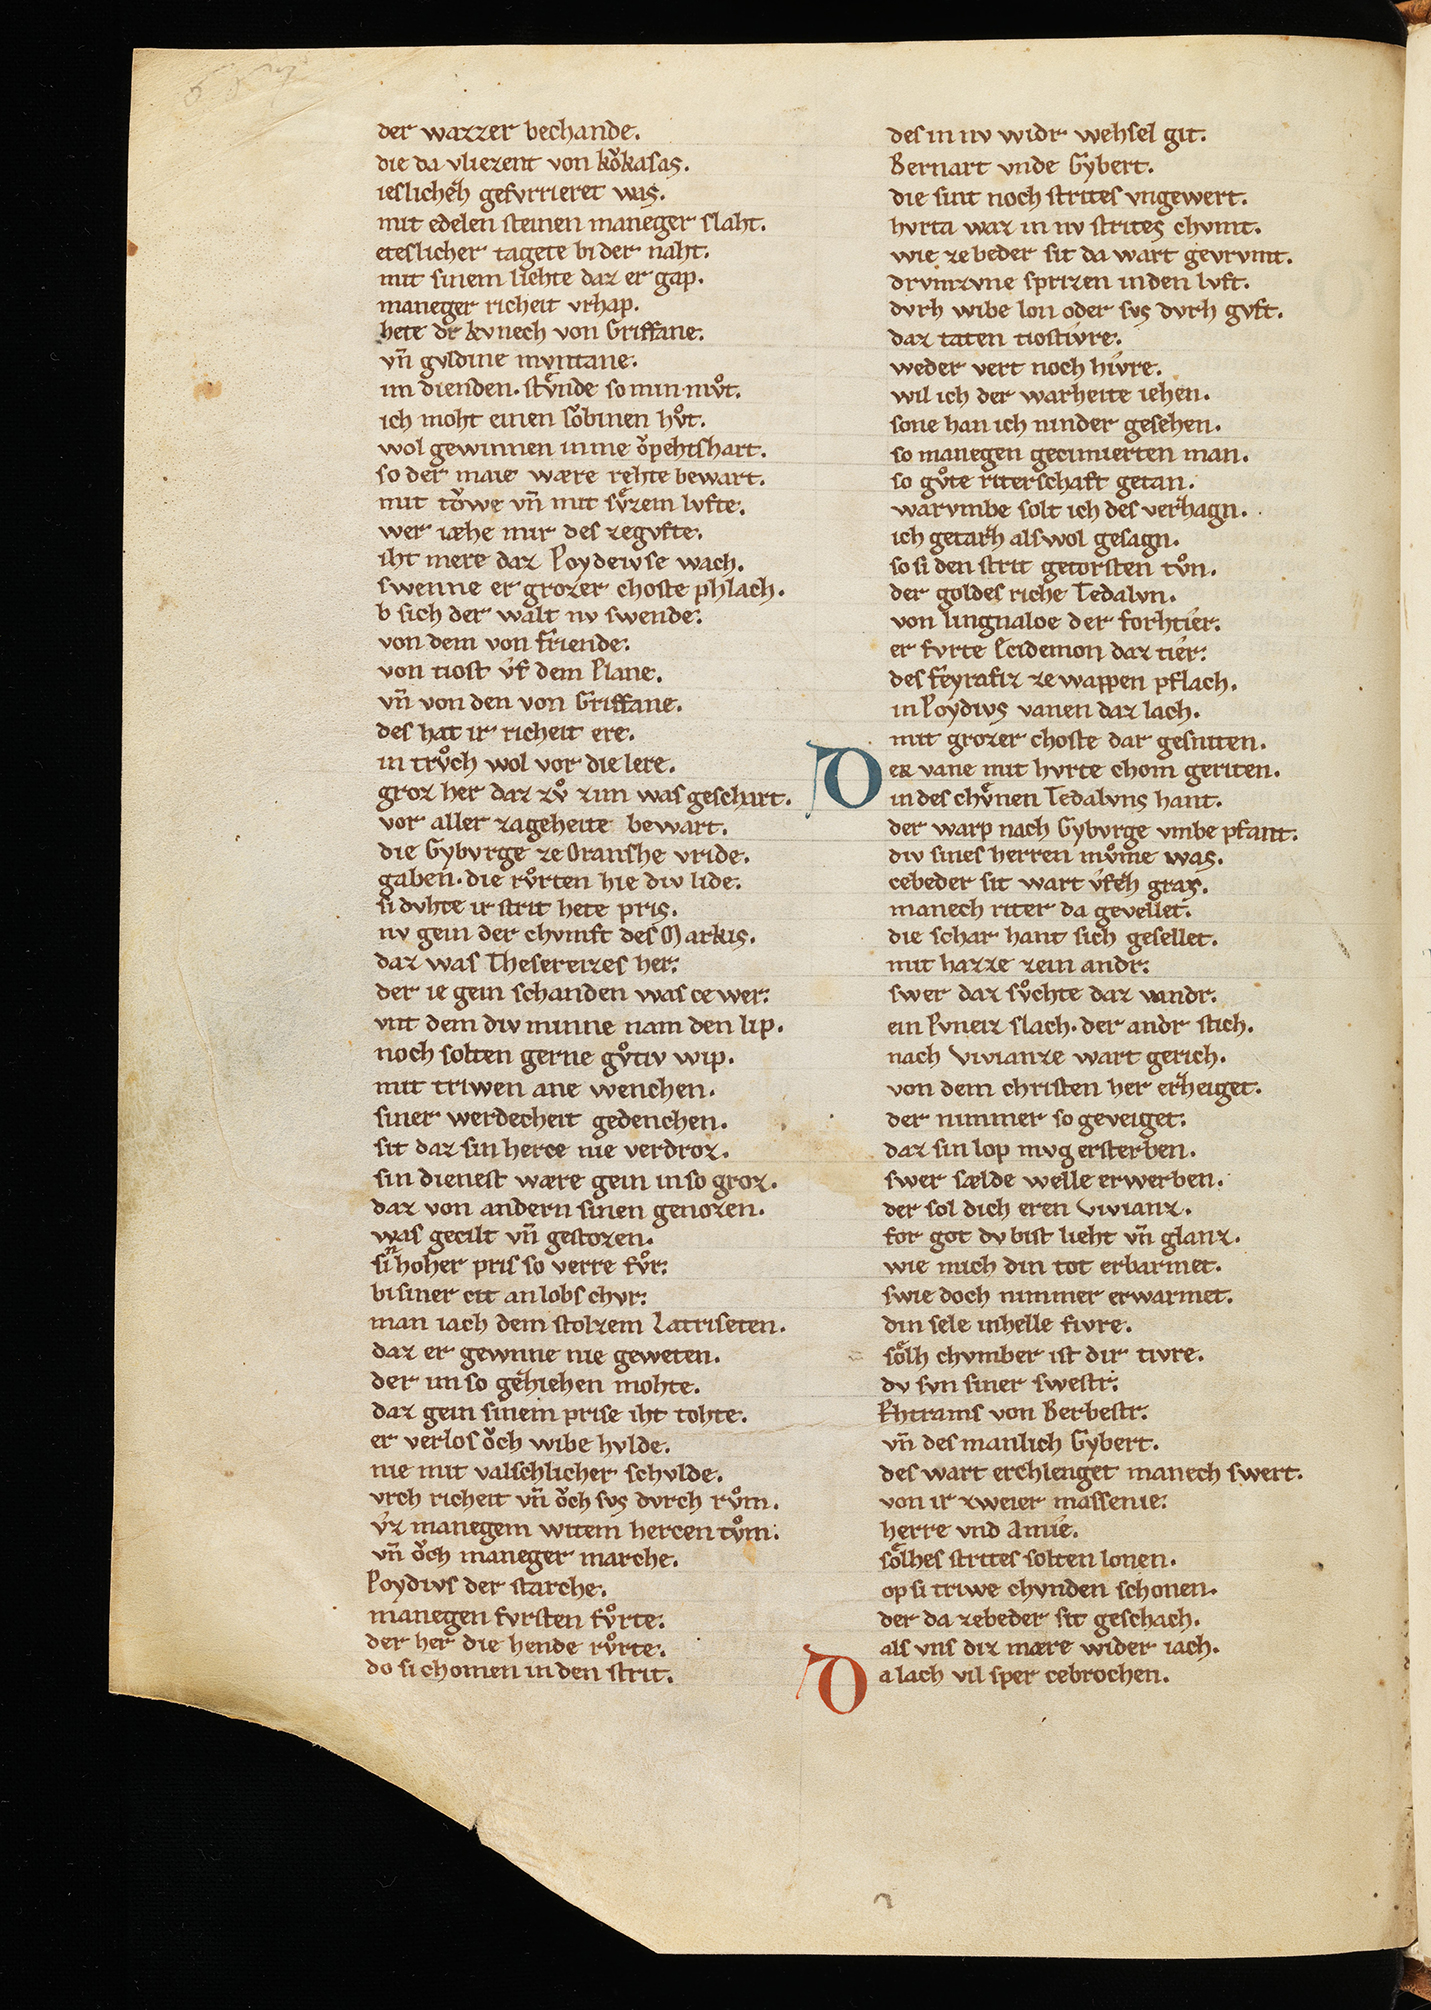 der wazzer bechande.
die da vliezent von kǒkasas.
ieslicheͣh gefvrrieret was.
mit edelen steinen maneger slaht.
eteslicher tagete bi der naht.
mit sinem liehte daz er gap.
maneger richeit vrhap.
hete dͤr kvnech von Griffane.
vn̄ gvldine mvntane.
im dienden. stv̊nde so min mv̊t.
ich moht einen sǒbinen hv̊t.
wol gewinnen inme ǒpehtshart.
so der maie wære rehte bewart.
mit tǒwe vn̄ mit sv̊zem lvfte.
wer iæhe mir des zegvfte.
iht mere daz Poydewse wach.
swenne er grozer choste phlach.
b sich der walt nv swende.
von dem von friende.
von tiost v́f dem Plane.
vn̄ von den von Griffane.
des hat ir richeit ere.
in trv̊ch wol vor die lere.
groz her daz zv̊ zim was geschart.
vor aller zageheite bewart.
die Gybvrge ze Oranshe vride.
gaben. die rv̊rten hie div lide.
si dvhte ir strit hete pris.
nv gein der chvmft des Markis.
daz was Thesereizes her.
der ie gein schanden was ce wer.
mit dem div minne nam den lip.
noch solten gerne gv̊tiv wip.
mit triwen ane wenchen.
siner werdecheit gedenchen.
sit daz sin herce nie verdroz.
sin dienest wære gein in so groz.
daz von andern sinen genozen.
was gecilt vn̄ gestozen.
sin hoher pris so verre fv̊r.
bi siner cit an lobs chvr.
man iach dem stolzem Latriseten.
daz er gewnne nie geweten.
der im so geͣhiehen mohte.
daz gein sinem prise iht tohte.
er verlos ǒch wibe hvlde.
nie mit valschlicher schvlde.
vrch richeit vn̄ ǒch svs dvrch rv̊m.
v́z manegem witem hercen tv̊m.
vn̄ ǒch maneger marche.
Poydivs der starche.
manegen fvrsten fv̊rte.
der her die hende rv̊rte.
do si chomen in den strit.
des in nv widr wehsel git.
Bernart vnde Gybert.
die sint noch strites vngewert.
hvrta waz in nv strites chvmt.
wie ze beder sit da wart gevrvmt.
drvmzvne sprizen in den lvft.
dvrh wibe lon oder svs dvrh gvft.
daz taten tiostivre.
weder vert noch hivre.
wil ich der warheite iehen.
sone han ich ninder gesehen.
so manegen gecimierten man.
so gv̊te riterschaft getan.
warvmbe solt ich des verͣhagn.
ich getarͣh als wol gesagn.
so si den strit getorsten tv̊n.
der goldes riche Tedalvn.
von lingnaloe der forhtier.
er fvrte Ecidemon daz tier.
des feyrafiz ze wappen pflach.
in Poydivs vanen daz lach.
mit grozer choste dar gesniten.
Der vane mit hvrte chom geriten.
in des chv̊nen Tedalvns hant.
der warp nach Gybvrge vmbe pfant.
div sines herren mv̊me was.
cebeder sit wart v́feͣh gras.
manech riter da gevellet.
die schar hant sich gesellet.
mit hazze zein andr.
swer daz sv̊chte daz vandr.
ein Pvneiz slach. der andr stich.
nach Vivianze wart gerich.
von dem christen her erͣheiget.
der nimmer so geveiget.
daz sin lop mvg ersterben.
swer sælde welle erwerben.
der sol dich eren Vivianz.
for got dv bist lieht vn̄ glanz.
wie mich din tot erbarmet.
swie doch nimmer erwarmet.
din sele in helle fivre.
sǒlh chvmber ist dir tivre.
dv svn siner swestr.
Ehtrams von Berbestr.
vn̄ des manlich Gybert.
des wart erchlenget manech swert.
von ir zweier massenie.
herre vnd Amie.
sǒlhes strites solten lonen.
op si triwe chvnden schonen.
der da zebeder sit geschach.
als vns diz mære wider iach.
Da lach vil sper cebrochen.